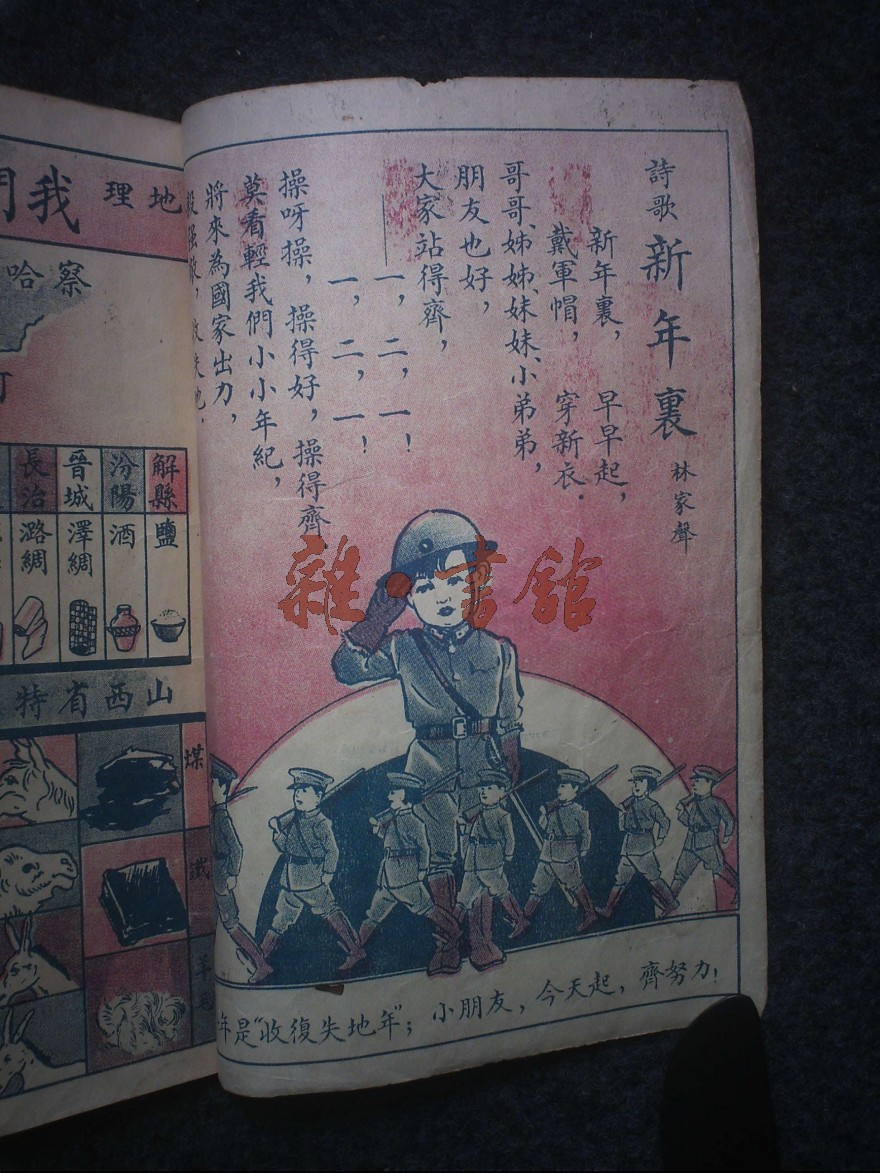 詩歌 新年裏 林家聲
新年裏， 早早起，
戴軍帽， 穿新衣．
哥哥、姊姊、妹妹、小弟弟，
朋友也好，
大家站得齊，
一，二，一！
一，二，一！
操呀操，操得好，操得齊
莫看輕我們小小年紀，
將來為國家出力，
年是“收復失地年”；小朋友，今天起，齊努力！
雜·書館
地理
我們
察哈
解縣 鹽
汾陽 酒
晉城 澤綢
長治 潞綢
山西省特
煤
鐵
羊毛